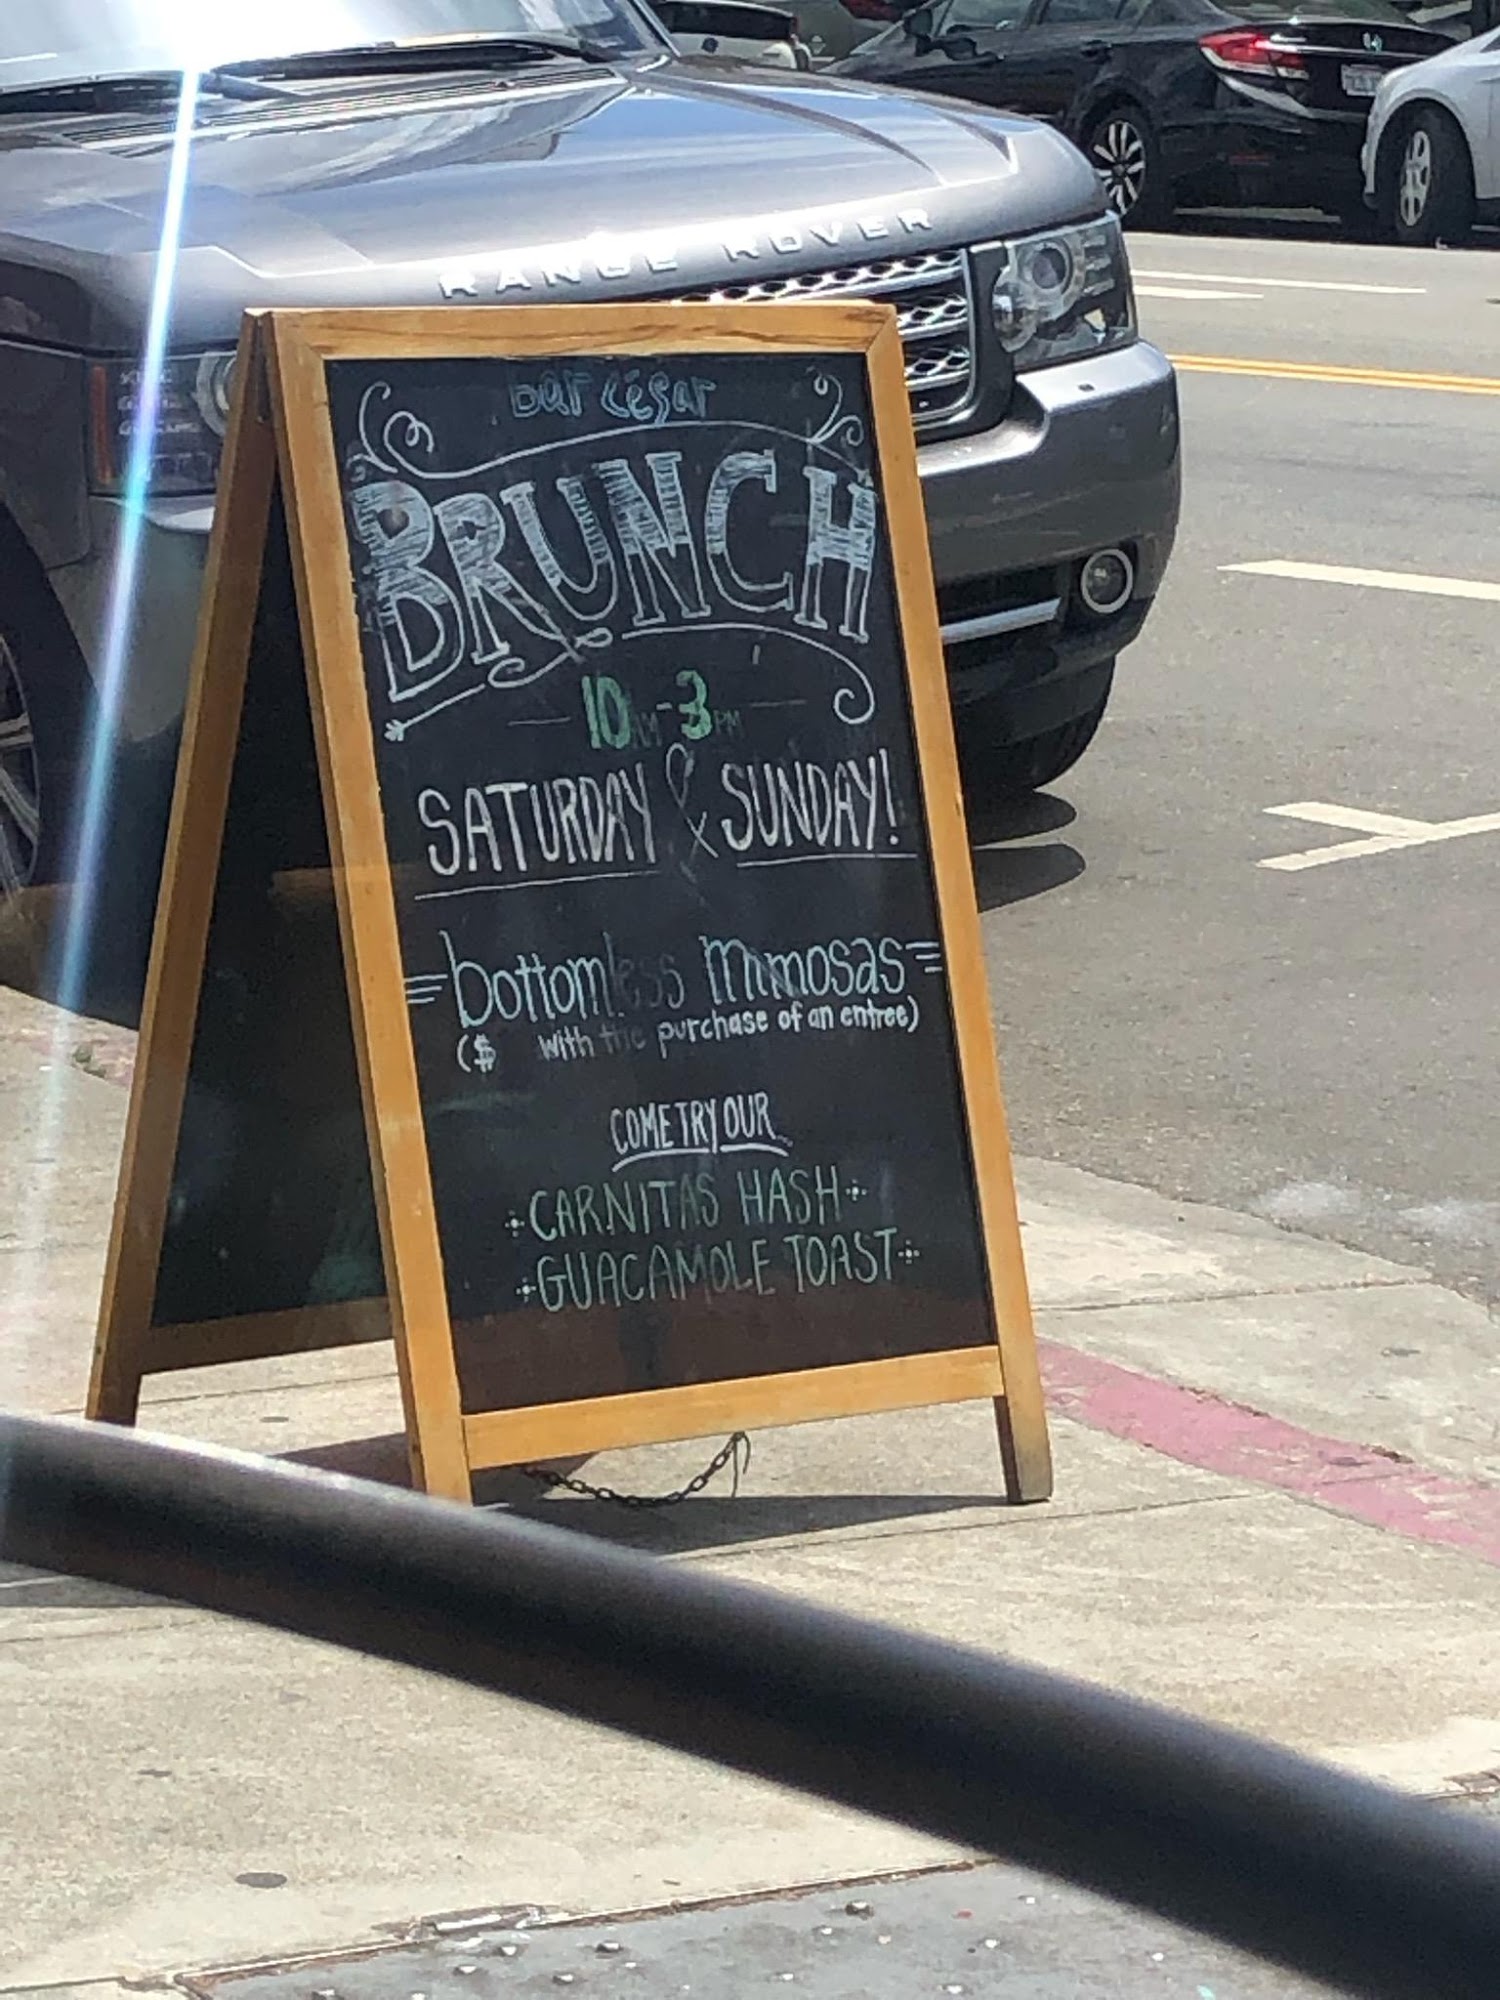 RANGE ROVER
bar césar
BRUNCH
10AM-3PM
SATURDAY & SUNDAY!
bottomless mimosas
($ with the purchase of an entree)
COME TRY OUR
CARNITAS HASH
GUACAMOLE TOAST